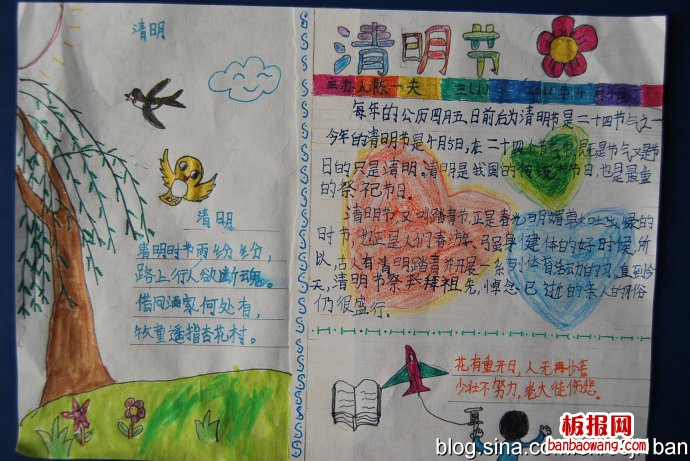 清明
清明
清明时节雨纷纷,
路上行人欲断魂。
借问酒家何处有,
牧童遥指杏花村。
清明节
主办人陈一夫
每年的公历四月五日前后为清明节是二十四节气之一
今年的清明节是4月5日,在二十四节气中,既是节气又是节
日的只是清明.清明是我国的传统节日,也是最重
的祭祀节日。
清明节又叫踏青节,正是春光明媚草木吐绿的
时节,也正是人们春游、强身健体的好时候,所
以,古人有清明踏青并开展一系列体育活动的习,直到今
天,清明节祭拜祖先,悼念已逝的亲人的习俗
仍很盛行。
花有重开日,人无再少年。
少壮不努力,老大徒伤悲。
板报网
banbaowang.com
blog.sina.com